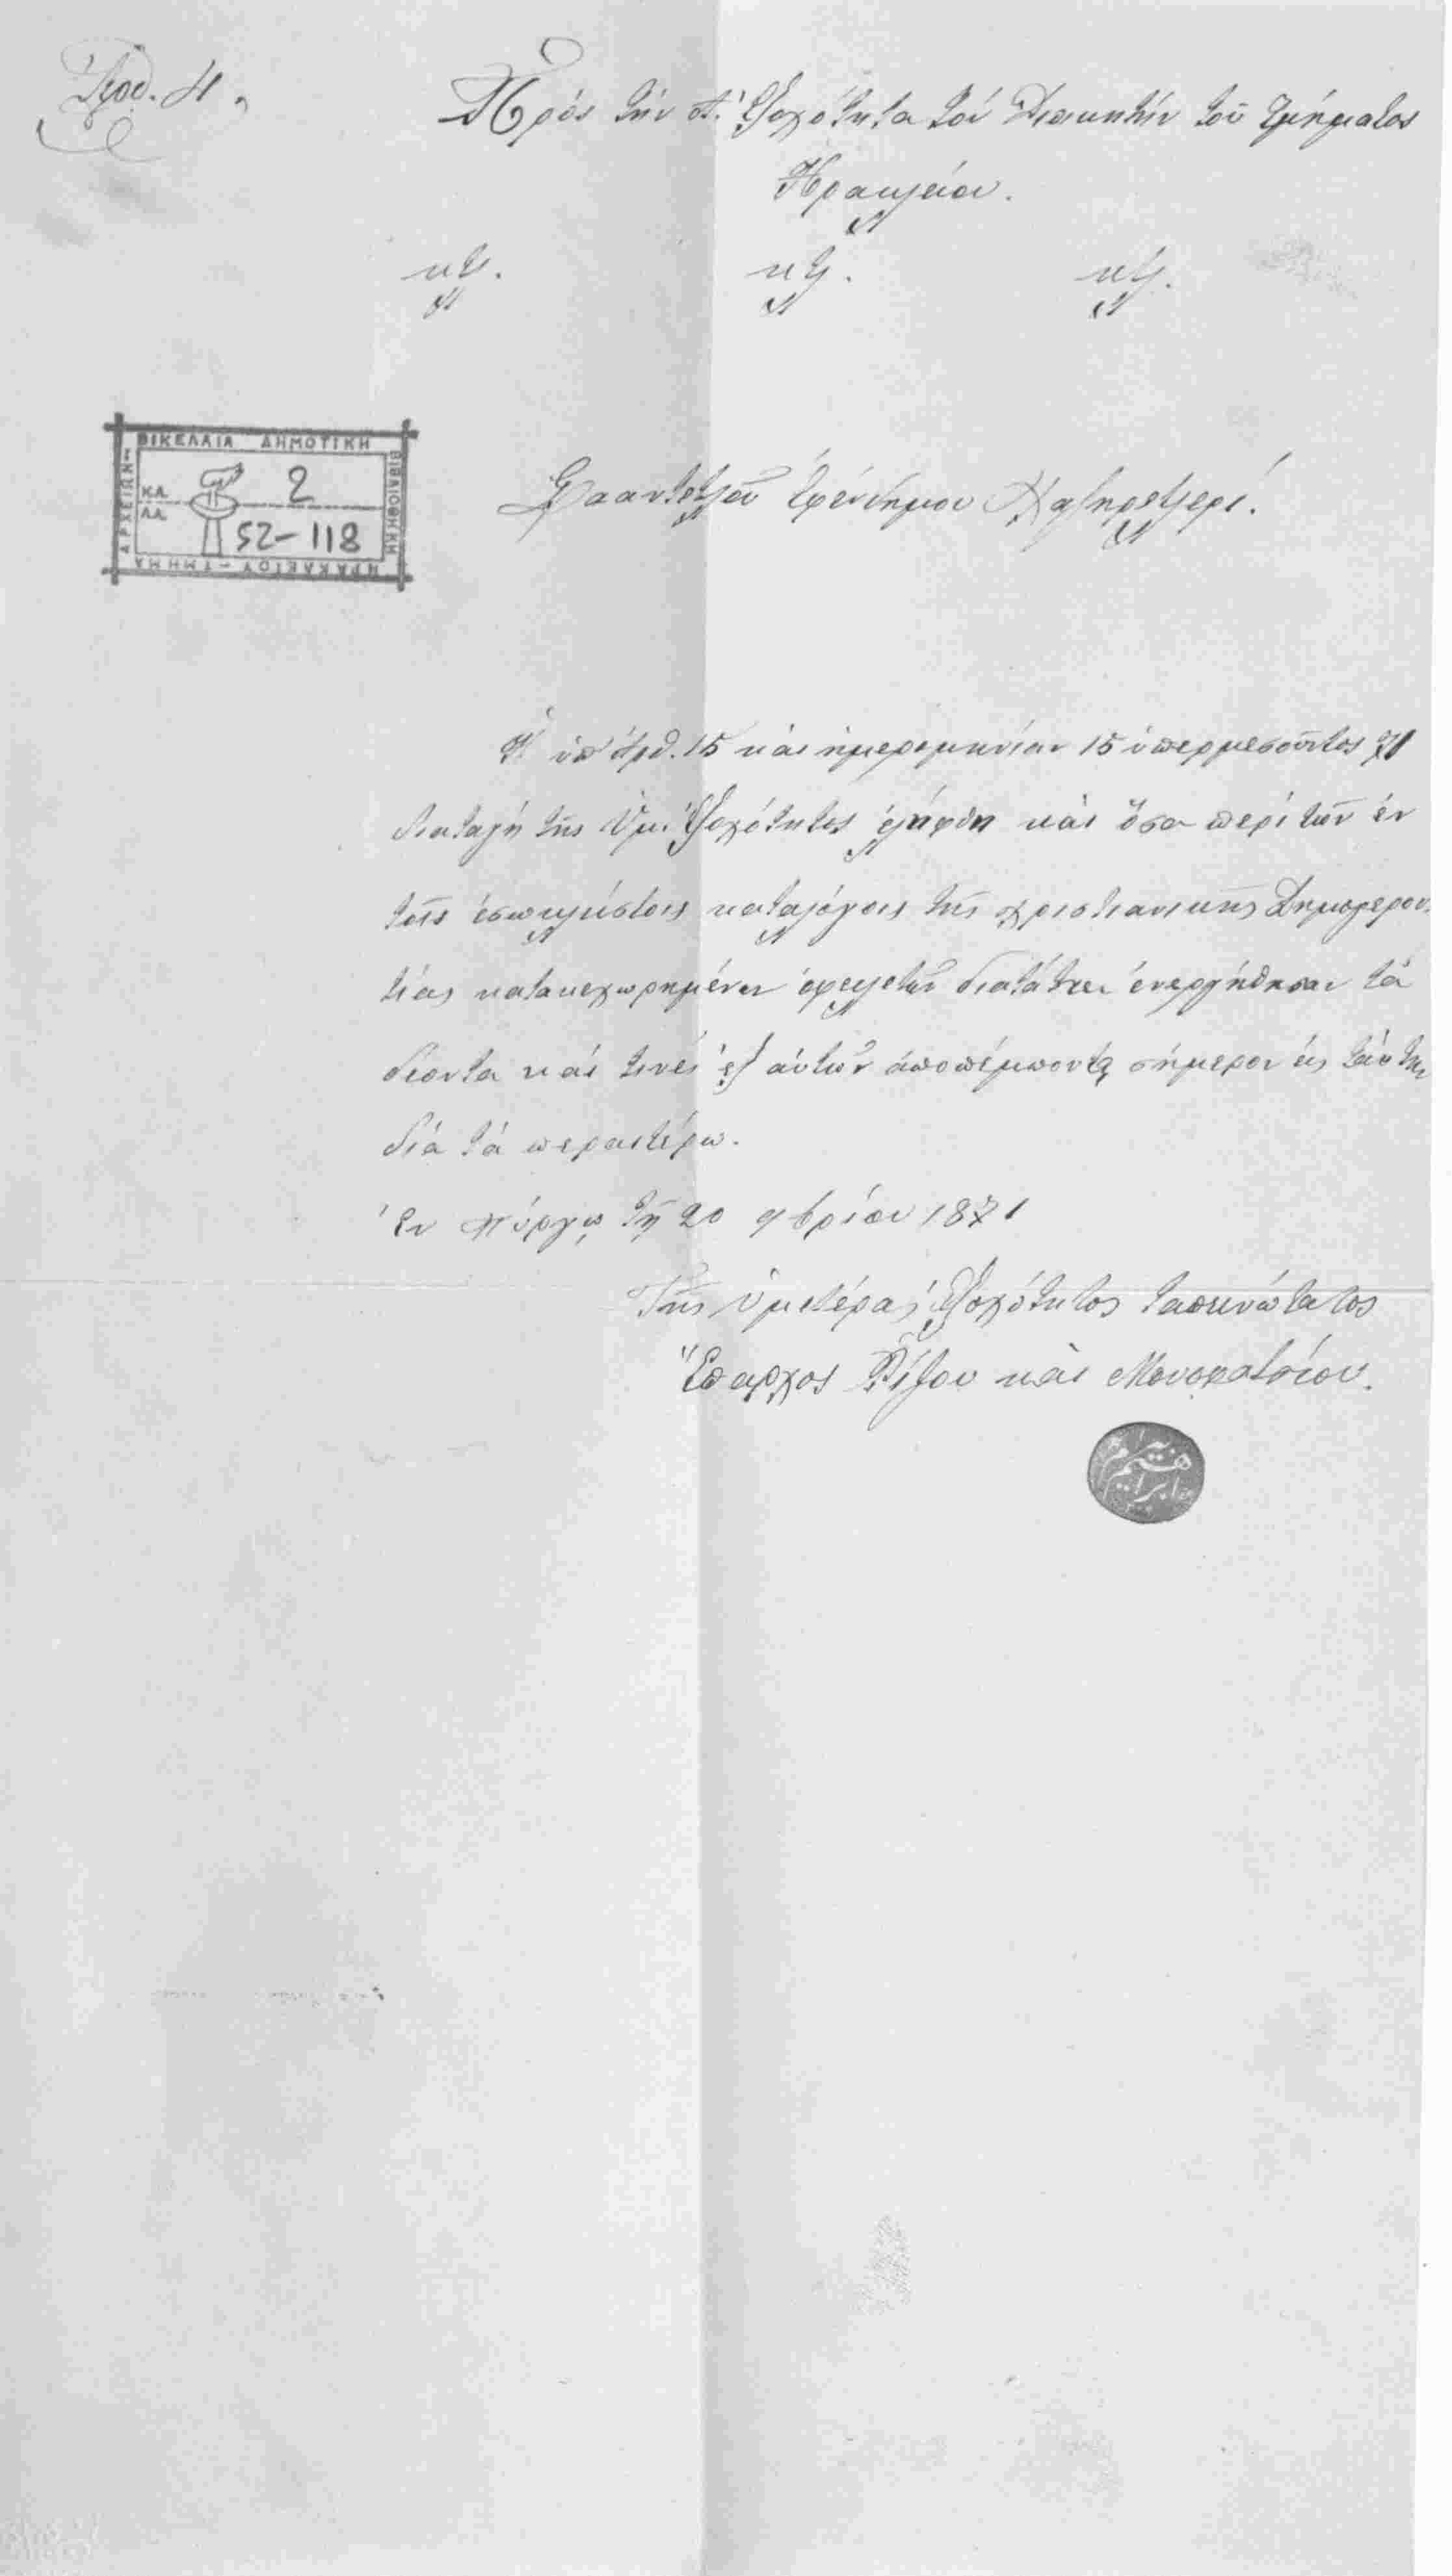 Ἀριθ. 41.
Πρὸς τὴν Α. Ἐξοχότητα τὸν Διοικητὴν τοῦ τμήματος
Ἡρακλείου.
κτλ. κτλ. κτλ.
ΒΙΚΕΛΑΙΑ ΔΗΜΟΤΙΚΗ
ΒΙΒΛΙΟΘΗΚΗ
ΗΡΑΚΛΕΙΟΥ - ΤΜΗΜΑ
ΑΡΧΕΙΩΝ
2
52-118
Σααντετλοῦ ἐφένδημου
Ἡ ὑπ' ἀρθ. 15 καὶ ἡμερομηνίαν 15 ὑπερμεσοῦντος
διαταγὴ τῆς Ὑμ. Ἐξοχότητος ἐλήφθη καὶ ὅσα περὶ τῶν ἐν
τοῖς ἐσωκλείστοις καταλόγοις τῆς χριστιανικῆς Δημογερον-
τίας κατακεχωρημένων ὀφειλετῶν διατάττει ἐνεργήθησαν τὰ
δέοντα καὶ τινὲς ἐξ αὐτῶν ἀποπέμπονται σήμερον εἰς ταύτην
διὰ τὰ περαιτέρω.
Ἐν Πύργῳ τῇ 20 9βρίου 1871
Τῆς ὑμετέρας Ἐξοχότητος ταπεινώτατος
Ἔπαρχος Ῥίζου καὶ Μονοφατσίου.